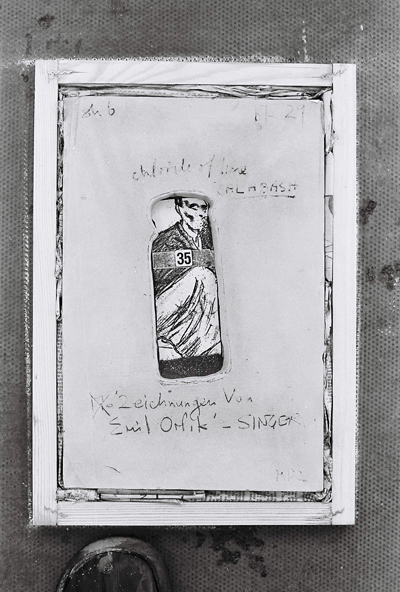 chloride of lime
CALABASH
35
Zeichnungen Von
'Emil Orlik' - SINGER